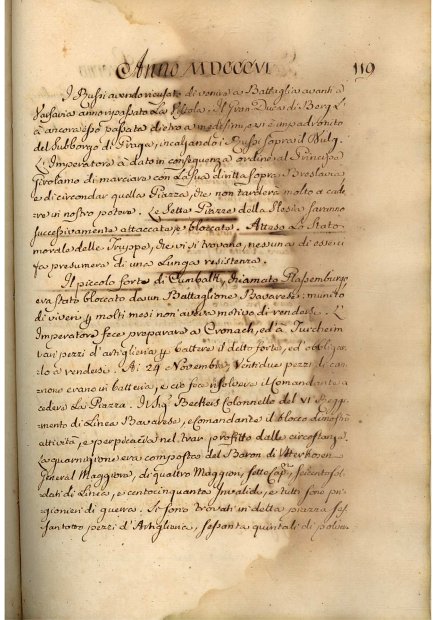 Anno MDCCCVI 119
I Russi avendo ricusato di venire a Battaglia avanti a
Varsavia anno ripassato La Vistola. Il Gran Duca di Berg L'
à ancora esso passato dietro a medesimi, e si è impadronito
del Subborgo di Praga, incalzando i Russi sopra il
L'Imperatore à dato in conseguenza ordine al Principe
Girolamo di marciare con La sua diritta sopra Breslavia
e di circondar quella Piazza, che non tarderà molto a cade
re in nostro potere. Le Sette Piazze della Slesia saranno
successivamente attaccate, e bloccate. Atteso Lo Stato
morale delle Truppe, che vi si trovano, nessuna di esse ci
fa presumere di una Lunga resistenza.
Il piccolo forte di chiamato Plassemburgo
era stato bloccato da un Battaglione Bavarese: munito
di viveri p molti mesi non aveva motivo di rendersi. L'
Imperatore fece preparare a Cronach, ed à Forcheim
vari pezzi di artiglieria p battere il detto forte, ed obbligar
lo a rendersi. Ai 24 Novembre, Ventidue pezzi di can
none erano in batteria, e ciò fece risolvere il Comandante a
cedere La Piazza. Il Beckers Colonnello del VI Regg
mento di Linea Bavarese, e Comandante il blocco dimostrò
attività, e perspicacia nel trar profitto dalle circostanze.
La guarnigione era composta del Baron di
General Maggiore, di quattro Maggiori, sette seicento sol
dati di Linea, e centocinquanta Invalidi, e tutti sono pri
gionieri di guerra. Si sono trovati in detta piazza ses
santotto pezzi d'Artiglieria, sessanta quintali di polve